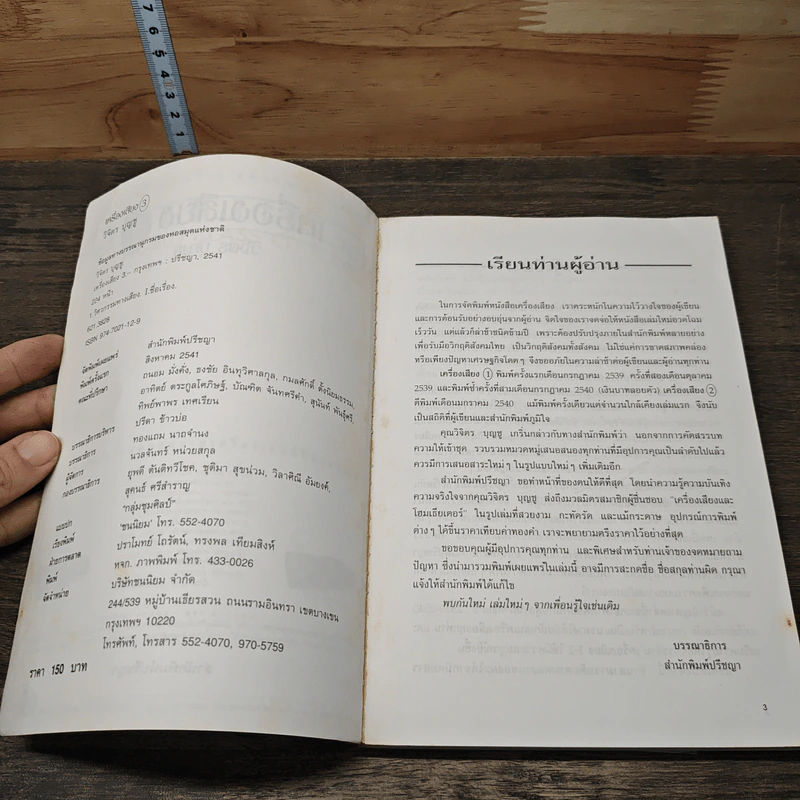 7 6 5 4 3 2 1
เครื่องเสียง ③
วิจิตร บุญชู
ข้อมูลทางบรรณานุกรมของหอสมุดแห่งชาติ
วิจิตร บุญชู
เครื่องเสียง 3.- กรุงเทพฯ : ปรีชญา, 2541
224 หน้า
1.วิศวกรรมทางเสียง. I.ชื่อเรื่อง.
621.3828
ISBN 974-7021-12-9
จัดพิมพ์เผยแพร่ สำนักพิมพ์ปรีชญา
พิมพ์ครั้งแรก สิงหาคม 2541
คณะที่ปรึกษา ถนอม มังคัง, ธงชัย อินทุวิศาลกุล, กมลศักดิ์ ตั้งนิยมธรรม,
อาทิตย์ ตระกูลโศภิษฐ์, บัณฑิต จันทศรีคำ, สุนันท์ พันธุ์ศรี,
ทิพย์พาพร เทศเรียน
บรรณาธิการบริหาร ปรีดา ข้าวบ่อ
บรรณาธิการ ทองแถม นาถจำนง
ผู้จัดการ นวลจันทร์ หน่วยสกุล
กองบรรณาธิการ ยุพดี ตันติทวีโชค, ชุติมา สุขน่วม, วิลาศิณี อัมยงค์,
สุคนธ์ ศรีสำราญ
แบบปก "กลุ่มชุมศิลป์"
เรียงพิมพ์ 'ชนนิยม' โทร. 552-4070
ฝ่ายการตลาด ปราโมทย์ โถรัตน์, ทรงพล เทียมสิงห์
พิมพ์ หจก. ภาพพิมพ์ โทร. 433-0026
จัดจำหน่าย บริษัทชนนิยม จำกัด
244/539 หมู่บ้านเธียรสวน ถนนรามอินทรา เขตบางเขน
กรุงเทพฯ 10220
โทรศัพท์, โทรสาร 552-4070, 970-5759
ราคา 150 บาท
เรียนท่านผู้อ่าน
ในการจัดพิมพ์หนังสือเครื่องเสียง เราตระหนักในความไว้วางใจของผู้เขียน
และการต้อนรับอย่างอบอุ่นจากผู้อ่าน จิตใจของเราจดจ่อให้หนังสือเล่มใหม่อวดโฉม
เร็ววัน แต่แล้วก็ล่าช้าชนิดข้ามปี เพราะต้องปรับปรุงภายในสำนักพิมพ์หลายอย่าง
เพื่อรับมือวิกฤติสังคมไทย เป็นวิกฤติสังคมทั้งสังคม ไม่ใช่แค่การขาดสภาพคล่อง
หรือเพียงปัญหาเศรษฐกิจโดดๆ จึงขออภัยในความล่าช้าต่อผู้เขียนและผู้อ่านทุกท่าน
เครื่องเสียง ① พิมพ์ครั้งแรกเดือนกรกฎาคม 2539 ครั้งที่สองเดือนตุลาคม
2539 และพิมพ์ซ้ำครั้งที่สามเดือนกรกฎาคม 2540 (เงินบาทลอยตัว) เครื่องเสียง ②
ตีพิมพ์เดือนมกราคม 2540 แม้พิมพ์ครั้งเดียวแต่จำนวนใกล้เคียงเล่มแรก จึงนับ
เป็นสถิติที่ผู้เขียนและสำนักพิมพ์ภูมิใจ
คุณวิจิตร บุญชู เกริ่นกล่าวกับทางสำนักพิมพ์ว่า นอกจากการคัดสรรบท
ความให้เข้าชุด รวบรวมหมวดหมู่เสนอสนองทุกท่านที่มีอุปการคุณเป็นลำดับไปแล้ว
ควรมีการเสนอสาระใหม่ๆ ในรูปแบบใหม่ๆ เพิ่มเติมอีก
สำนักพิมพ์ปรีชญา ขอทำหน้าที่ของตนให้ดีที่สุด โดยนำความรู้ความบันเทิง
ความจริงใจจากคุณวิจิตร บุญชู ส่งถึงมวลมิตรสมาชิกผู้ชื่นชอบ "เครื่องเสียงและ
โฮมเธียเตอร์" ในรูปเล่มที่สวยงาม กะทัดรัด และแม้กระดาษ อุปกรณ์การพิมพ์
ต่างๆ ได้ขึ้นราคาเทียบค่าทองคำ เราจะพยายามตรึงราคาไว้อย่างที่สุด
ขอขอบคุณผู้มีอุปการคุณทุกท่าน และพิเศษสำหรับท่านเจ้าของจดหมายถาม
ปัญหา ซึ่งนำมารวมพิมพ์เผยแพร่ในเล่มนี้ อาจมีการสะกดชื่อ ชื่อสกุลท่านผิด กรุณา
แจ้งให้สำนักพิมพ์ได้แก้ไข
พบกันใหม่ เล่มใหม่ๆ จากเพื่อนรู้ใจเช่นเดิม
บรรณาธิการ
สำนักพิมพ์ปรีชญา
3